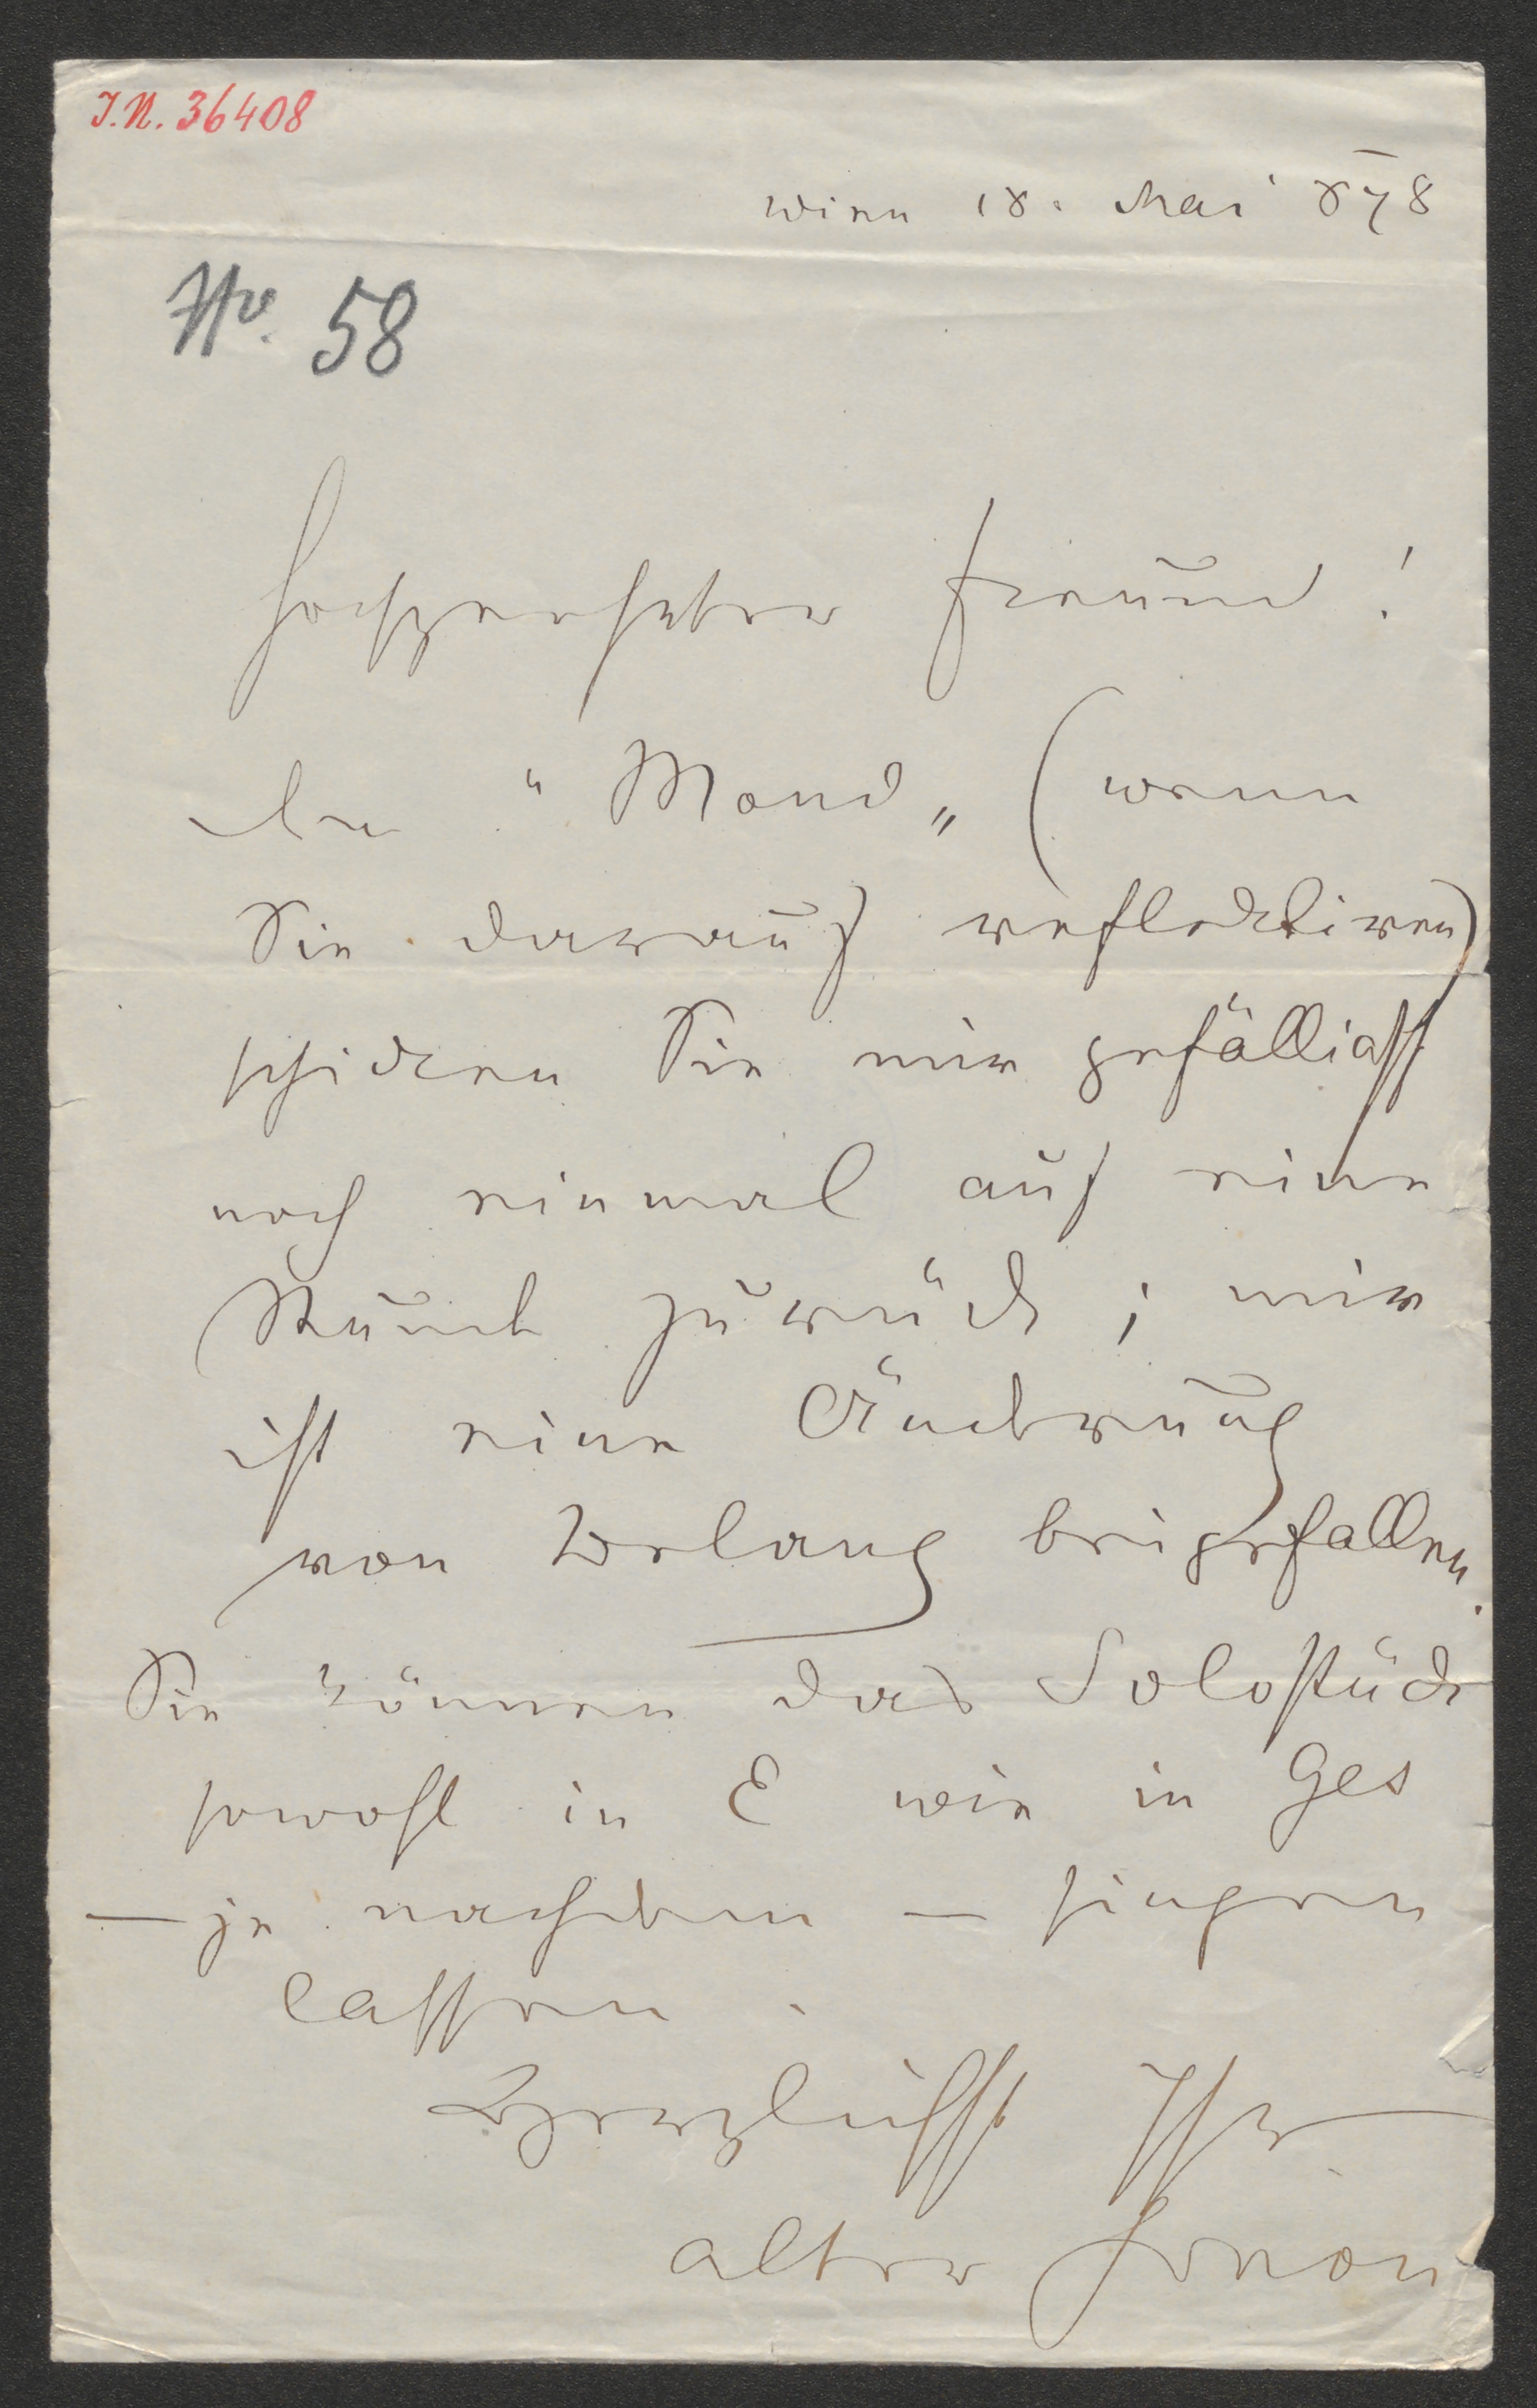 I.N. 36408
Wien 18. Mai 878
No. 58
Hochgeehrter Freund!
Den "Mond„ (wenn
Sie darauf reflektiren)
schicken Sie mir gefälligst
noch einmal auf eine
Stunde zurück; mir
ist eine Änderung
von Belang beigefallen.
Sie können das Solostück
sowohl in E wie in Ges
— je nachdem — singen
lassen.
Herzlichst Ihr
alter